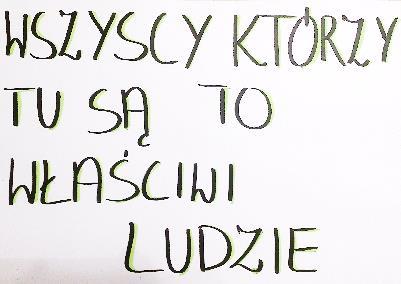 WSZYSCY KTÓRZY
TU SĄ TO
WŁAŚCIWI
LUDZIE